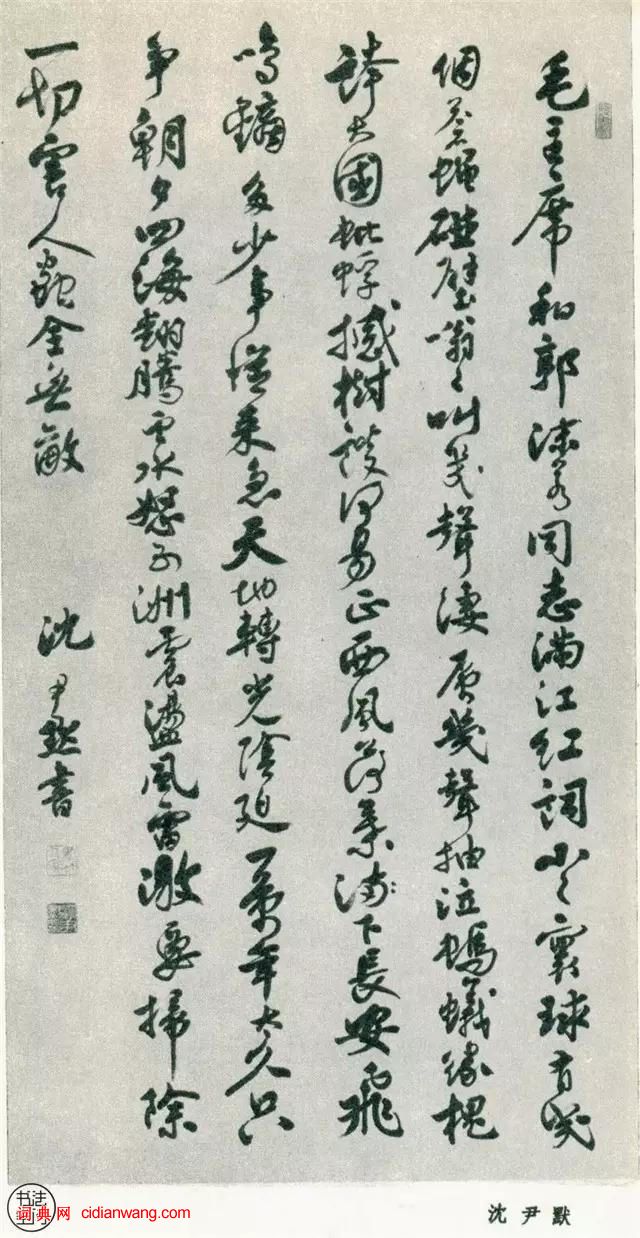 毛主席和郭沫若同志滿江紅詞小々寰球有幾
個蒼蠅碰壁嗡々叫幾聲淒厲幾聲抽泣螞蟻緣槐
誇大國蚍蜉撼樹談何易正西風落葉下長安飛
鳴鏑多少事從來急天地轉光陰迫一萬年太久只
爭朝夕四海翻騰雲水怒五洲震盪風雷激要掃除
一切害人蟲全無敵
沈尹默書
沈尹默
书法
词典网 cidianwang.com